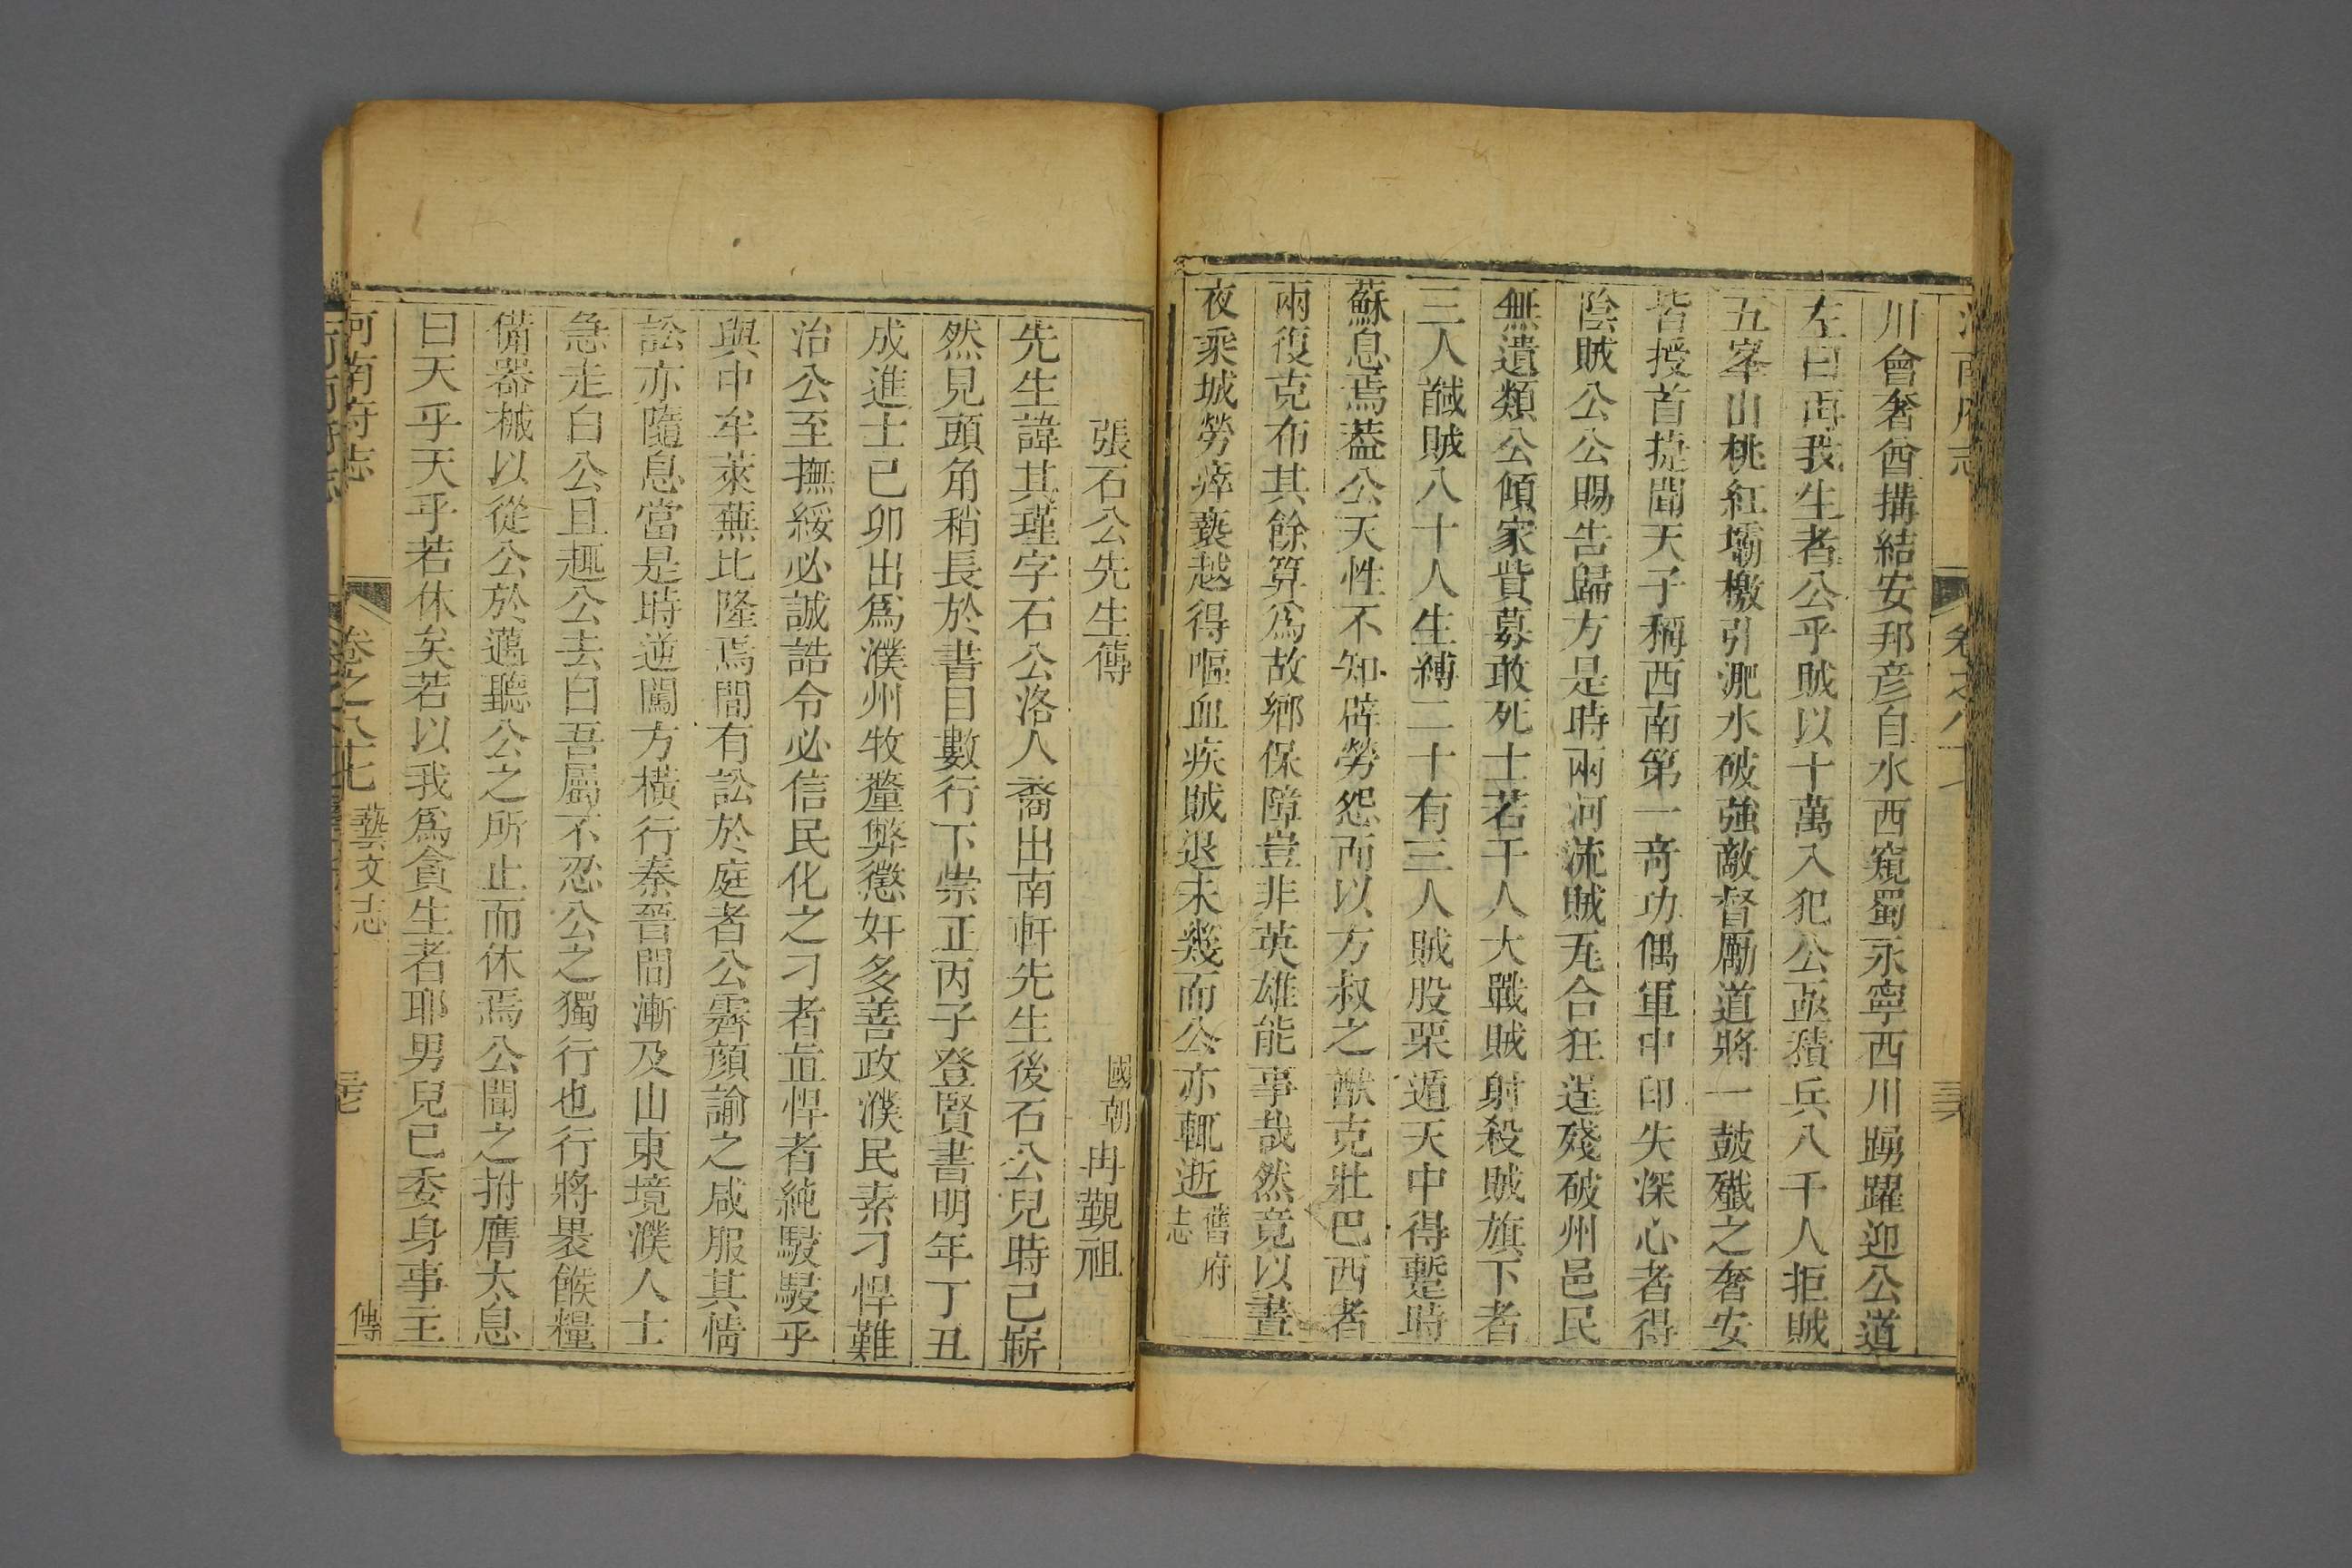 河南府志
卷之八十七
三六
川會奢酋搆結安邦彦自水西窺蜀永寧西川踴躍迎公道
左曰再我生者公乎賊以十萬入犯公亟積兵八千人拒賊
五峯山桃紅壩檄引淝水破強敵督厲道將一鼓殲之奢安
皆授首捷聞天子稱西南第一竒功偶軍中印失深心者得
陰賊公公賜告歸方是時兩河流賊瓦合狂逞殘破州邑民
無遺類公傾家貲募敢死士若干人大戰賊射殺賊旗下者
三人馘賊八十人生縛二十有三人賊股栗遁天中得蹔時
蘇息焉葢公天性不知辟勞怨而以方叔之猷克壯巴西者
兩復克布其餘算爲故鄉保障豈非英雄能事哉然竟以晝
夜乘城勞瘁䙝越得嘔血疾賊退未幾而公亦輒逝舊府志
張石公先生傳　國朝冉覲祖
先生諱其瑾字石公洛人裔出南軒先生後石公兒時已嶄
然見頭角稍長於書目數行下崇正丙子登賢書明年丁丑
成進士已卯出爲濮州牧釐弊懲奸多善政濮民素刁悍難
治公至撫綏必誠誥令必信民化之刁者直悍者純駸駸乎
與中牟萊蕪比隆焉間有訟於庭者公霽顔諭之咸服其情
訟亦隨息當是時逆闖方横行秦晉間漸及山東境濮人士
急走白公且趣公去曰吾屬不忍公之獨行也行將褁餱糧
備器械以從公於邁聽公之所止而休焉公聞之拊膺太息
曰天乎天乎若休矣若以我爲貪生者耶男兒已委身事主
河南府志
卷之八十七
藝文志
三七
傳